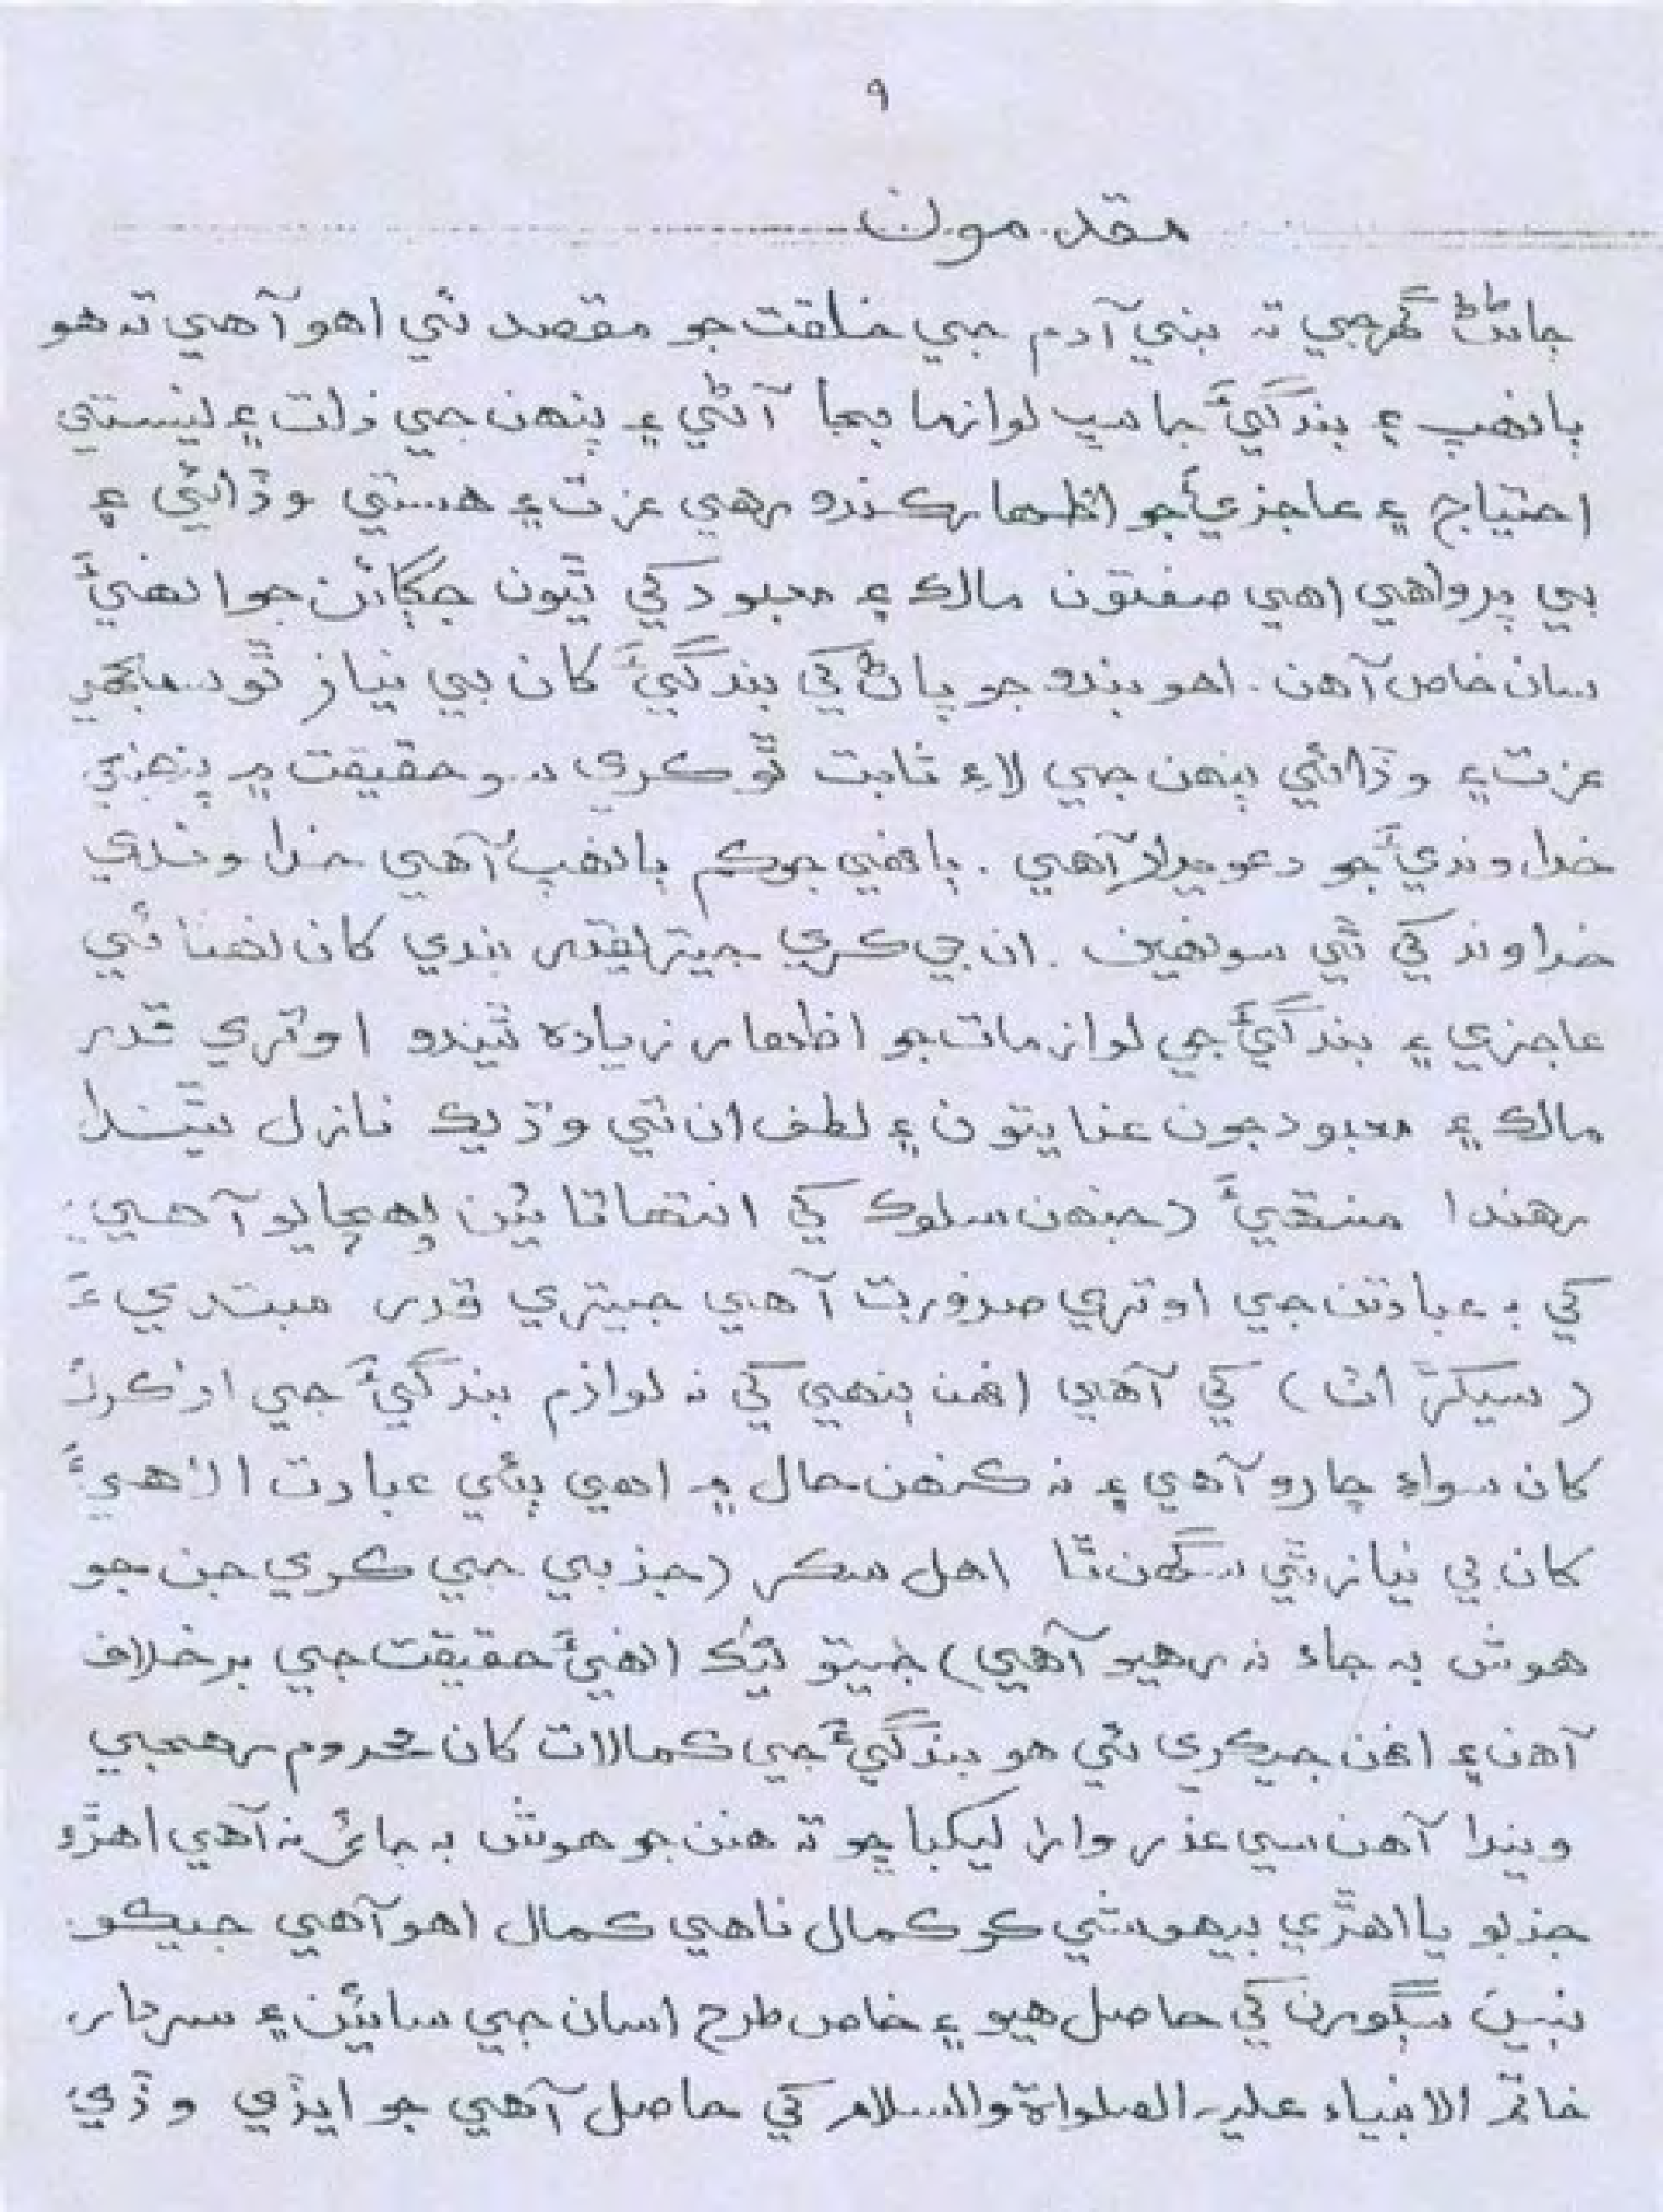 ٩
مقدمون
جاڻڻ گھرجي ته بني آدم جي خلقت جو مقصد ئي اهو آهي ته هو
ٻانهپ ۽ بندگيءَ جا سڀ لوازما بجا آڻي ۽ پنهن جي ذلت ۽ نيستي
احتياج ۽ عاجزيءَ جو اظهار ڪندو رهي عزت ۽ هستي وڏائي ۽
بي پرواهي اهي صفتون مالڪ ۽ معبود کي ٿيون جڳائن جو انهيءَ
سان خاص آهن. اهو بندو جو پاڻ کي بندگيءَ کان بي نياز ٿو سمجهي
عزت ۽ وڏائي پنهن جي لاءِ ثابت ٿو ڪري سو حقيقت ۾ پنهنجي
خداونديءَ جو دعويدار آهي. ٻانهي جو ڪم ٻانهپ آهي خداوندي
خداوند کي ٿي سونهين. ان جي ڪري جيتريقدر بندي کان نهٺائي
عاجزي ۽ بندگيءَ جي لوازمات جو اظهار زياده ٿيندو اوتري قدر
مالڪ ۽ معبود جون عنايتون ۽ لطف ان تي وڌيڪ نازل ٿيندا
رهندا منتهيءَ (جنهن سلوڪ کي انتها تائين پهچايو آهي)
کي به عبادتن جي اوتري ضرورت آهي جيتري قدر مبتديءَ
(سيکڙاٽ) کي آهي (انهن ٻنهي کي نه لوازم بندگيءَ جي ادا ڪرڻ
کان سواءِ چارو آهي ۽ نه ڪنهن حال ۾ اهي ٻئي عبادت الاهيءَ
کان بي نياز ٿي سگهن ٿا اهل سڪر (جذبي جي ڪري جن جو
هوش به جاءِ نه رهيو آهي) جيتوڻيڪ انهيءَ حقيقت جي برخلاف
آهن ۽ انهن جيڪري ئي هو بندگيءَ جي ڪمالات کان محروم رهجي
ويندا آهن سي عذر وارا ليکبا ڇو ته هنن جو هوش به جاءِ نه آهي اهڙو
جذبو يا اهڙي بيهوشي ڪو ڪمال ناهي ڪمال اهو آهي جيڪو
نبين سڳورن کي حاصل هيو ۽ خاص طرح اسان جي سائين ۽ سردار
خاتم الانبياء عليه الصلواة والسلام کي حاصل آهي جو ايڏي وڏي